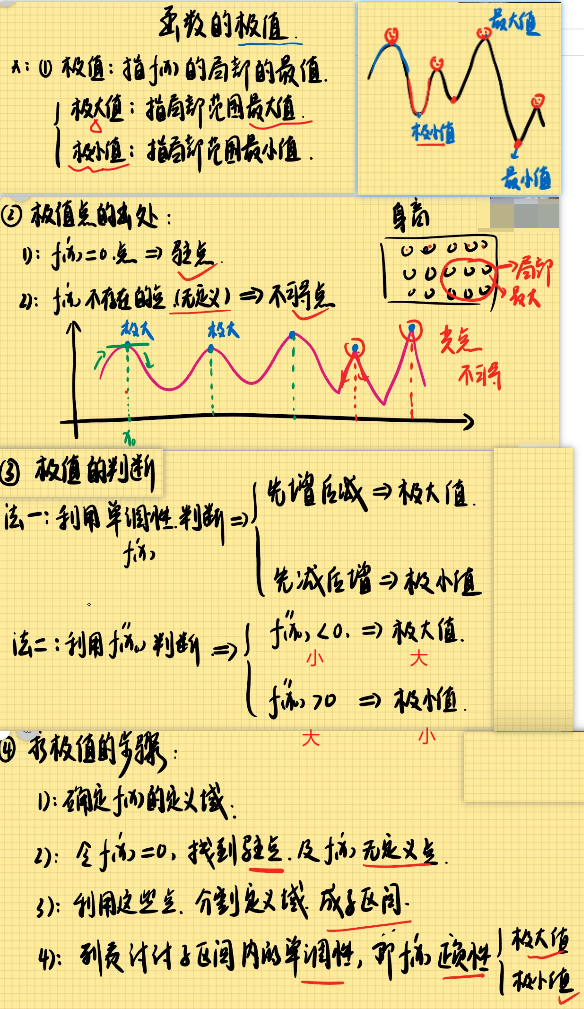 函数的极值.
一: ① 极值: 指f(x)的局部的最值.
极大值: 指局部范围最大值.
极小值: 指局部范围最小值.
最大值
极小值
最小值
② 极值点的出处:
1): f'(x)=0.点 ⇒ 驻点.
2): f'(x) 不存在的点 (无定义) ⇒ 不可导点
身高
局部
最大
极大
极大
尖点
不可导
x₀
③ 极值的判断
法一: 利用单调性.判断 ⇒
f'(x)
先增后减 ⇒ 极大值.
先减后增 ⇒ 极小值
法二: 利用f''(x) 判断 ⇒
f''(x)<0. ⇒ 极大值.
小 大
f''(x)>0 ⇒ 极小值.
大 小
④ 求极值的步骤:
1): 确定f(x)的定义域.
2): 令f'(x)=0, 找到驻点.及f'(x)无定义点.
3): 利用这些点.分割定义域 成子区间.
4): 列表讨论子区间内的单调性, 即f'(x)正负性
极大值
极小值